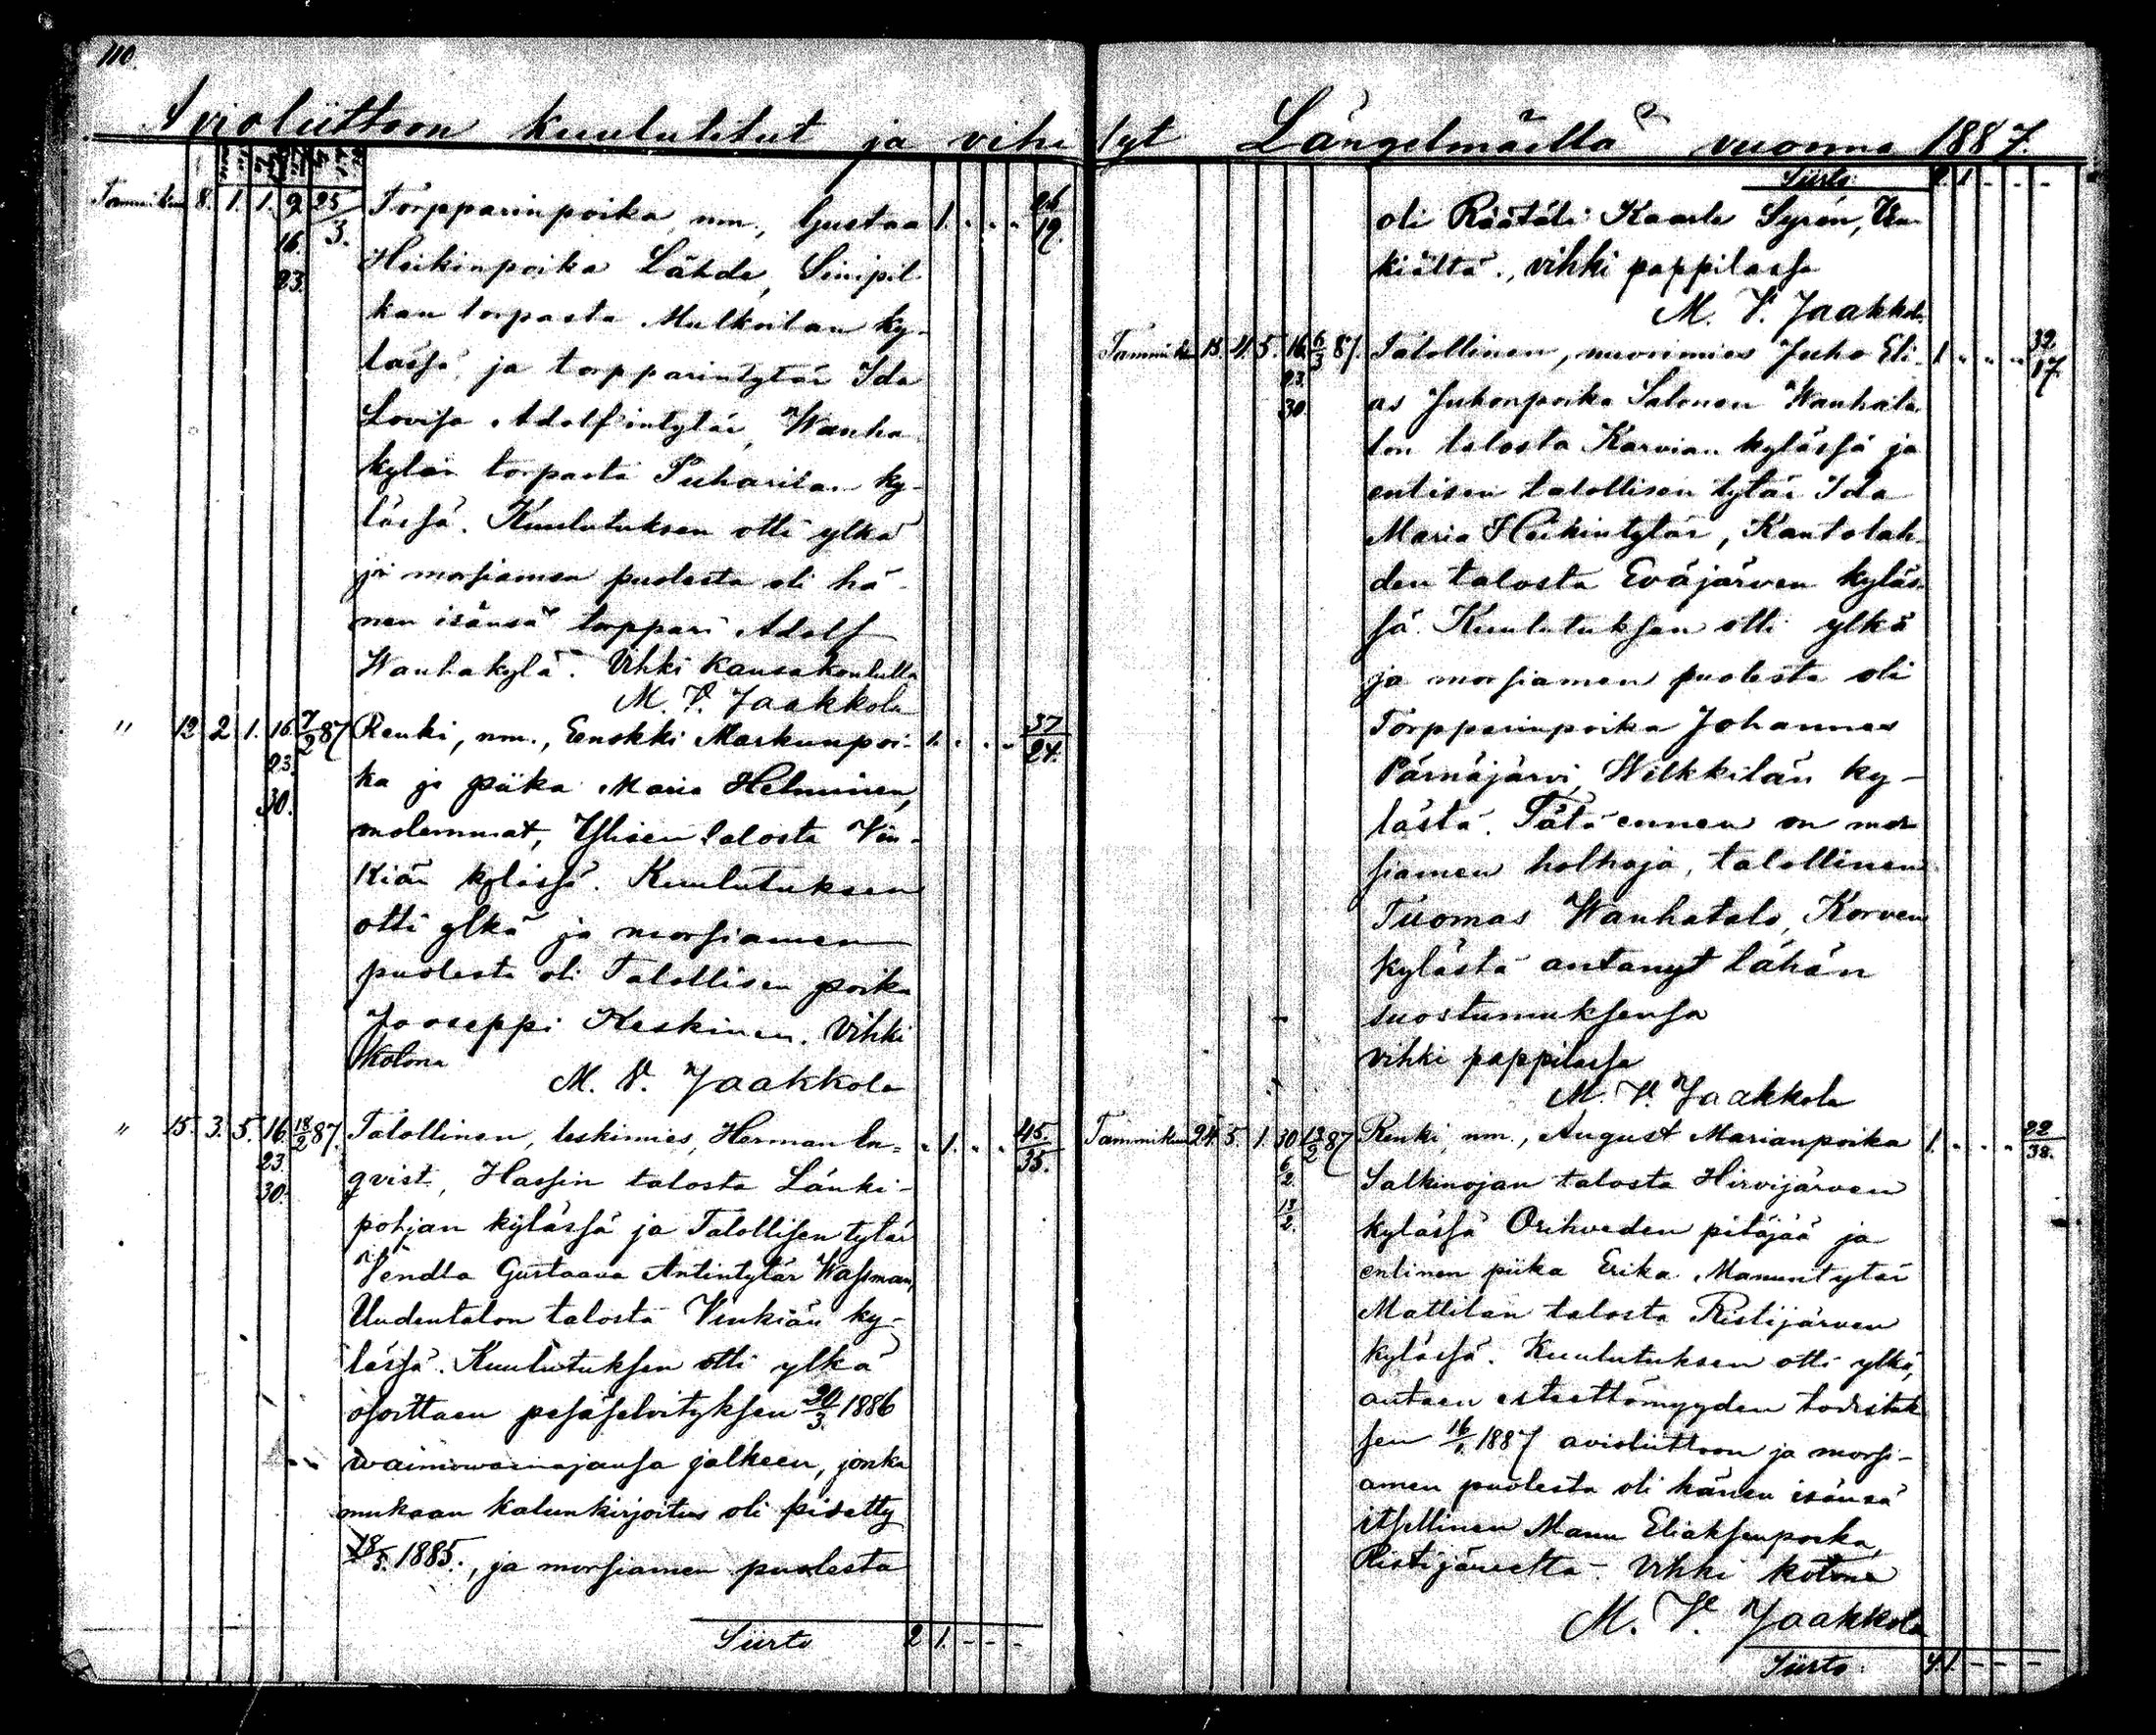 110.
Avioliittoon kuulutetut ja vihityt Längelmäellä vuonna 1887.
Tammikuu 8. 1. 1. 9 25/3. Torpparinpoika, nm, Gustaa 1. 26/19.
16. Heikinpoika Lähde, Sinipil
23. kan torpasta Mulkoilan ky-
lässä, ja torpparintytär Ida
Lovisa Adolfintytär, Wanha
kylän torpasta Puharilan ky-
lässä. Kuulutuksen otti ylkä
ja morsiamen puolesta oli hä-
nen isänsä torppari Adolf
Wanhakylä. Vihki kansakoululla
M. V. Jaakkola
" 12 2 1. 16. 7/2 87 Renki, nm., Eenokki Markunpoi- 1. 37/24.
23. ka ja piika Maria Helminen,
30. molemmat, Ylisen talosta Vin-
kiän kylässä. Kuulutuksen
otti ylkä ja morsiamen
puolesta oli Talollisen poika
Jooseppi Keskinen. Vihki
kotona M. V. Jaakkola
" 15. 3. 5. 16 18/2 87. Talollinen, leskimies, Herman En= 1. 45./35.
23. qvist, Hassin talosta Länki-
30. pohjan kylässä ja Talollisen tytär
Sendla Gustaava Antintytär Wassman,
Uudentalon talosta Vinkiän ky-
lässä. Kuulutuksen otti ylkä
osoittaen pesäselvityksen 20/3. 1886
vaimovainajansa jälkeen, jonka
mukaan kalunkirjoitus oli pidetty
18/5. 1885., ja morsiamen puolesta
Siirto 2 1. - - -
Siirto 2. 1 - - -
oli Räätäli Kaarle Syrén, Vin-
kiältä., vihki pappilassa
M. V. Jaakkola
Tammikuu 15. 4. 5. 16. 6/3 87. Talollinen, nuorimies Juho Eli- 1. 32/17.
23. as Juhonpoika Salonen Wanhata-
30. lon talosta Karvian kylässä ja
entisen talollisen tytär Ida
Maria Heikintytär, Kantolah-
den talosta Eväjärven kyläs-
sä. Kuulutuksen otti ylkä
ja morsiamen puolesta oli
Torpparinpoika Johannes
Pärnäjärvi, Wilkkilän ky-
lästä. Tätä ennen on mor
siamen holhoja, talollinen
Tuomas Wanhatalo, Korven
kylästä antanyt tähän
suostumuksensa
vihki pappilassa
M. V. Jaakkola
Tammikuu 24. 5. 1. 30 13/2 87 Renki, nm., August Marianpoika 1. 22/38.
6/2. Salkinojan talosta Hirvijärven
13/2. kylässä Orihveden pitäjää ja
entinen piika Erika Manuntytär
Mattilan talosta Ristijärven
kylässä. Kuulutuksen otti ylkä,
antaen esteettömyyden todistuk
sen 16/1. 1887 avioliittoon ja morsi-
amen puolesta oli hänen isänsä
itsellinen Manu Eliaksenpoika,
Ristijärveltä. Vihki kotona
M. V. Jaakkola
Siirto: 4. 1 - - -